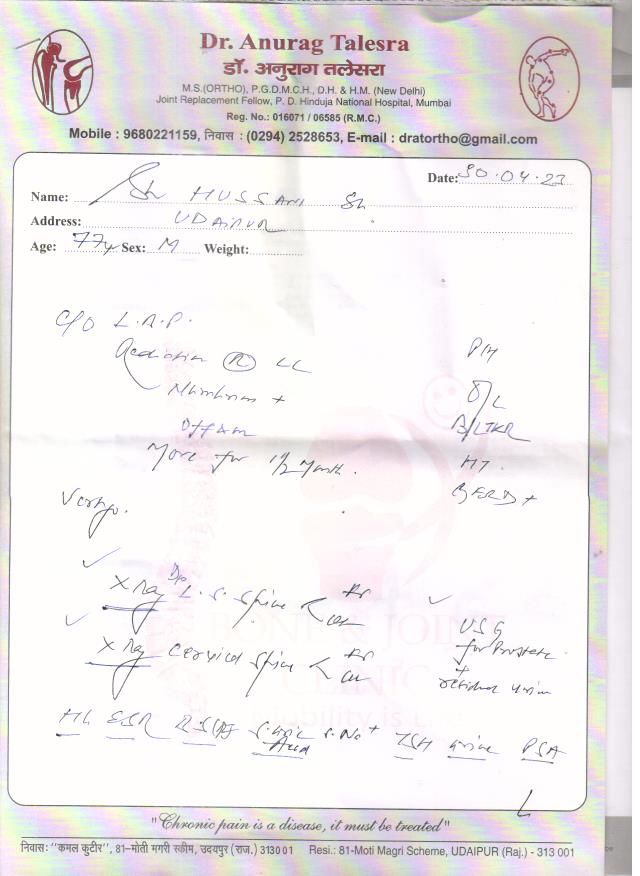 Dr. Anurag Talesra
डॉ. अनुराग तलेसरा
M.S.(ORTHO), P.G.D.M.C.H., D.H. & H.M. (New Delhi)
Joint Replacement Fellow, P. D. Hinduja National Hospital, Mumbai
Reg. No.: 016071 / 06585 (R.M.C.)
Mobile : 9680221159, निवास : (0294) 2528653, E-mail : dratortho@gmail.com
Date: 30.04.22
Name: Sh HUSSAINI Sh
Address: UDAIPUR
Age: 77y Sex: M Weight:
C/O L.B.P.
Radiation (R) LL
Numbness +
More for 1/2 Month.
Vertigo.
P/H
B/L TKR
HT
GERD +
X Ray L.S. Spine AP
X Ray Cervical Spine AP
USG
for Prostate
+
residual urine
Hb ESR S. Uric Acid S. Na+ TSH urine PSA
BONE & JOINT
CLINIC
"Chronic pain is a disease, it must be treated"
निवास: "कमल कुटीर", 81-मोती मगरी स्कीम, उदयपुर (राज.) 313001 Resi.: 81-Moti Magri Scheme, UDAIPUR (Raj.) - 313 001